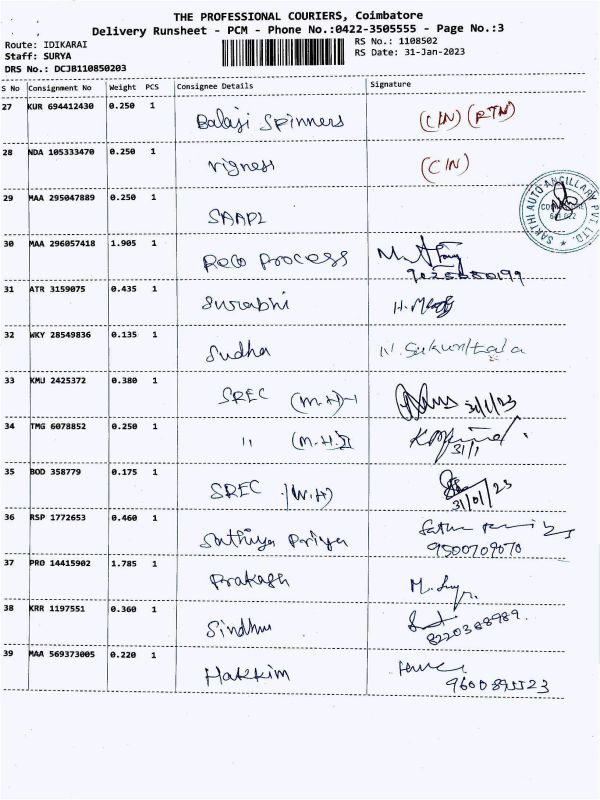 THE PROFESSIONAL COURIERS, Coimbatore
Delivery Runsheet - PCM - Phone No.:0422-3505555 - Page No.:3
Route: IDIKARAI
RS No.: 1108502
Staff: SURYA
RS Date: 31-Jan-2023
DRS No.: DCJB110850203
S No Consignment No Weight PCS Consignee Details Signature
27 KUR 694412430 0.250 1 Balaji Spinners (CIN) (RTN)
28 NDA 105333470 0.250 1 Vignesh (CIN)
29 MAA 295047889 0.250 1 SAAPL
SARTHI AUTO ANCILLARY PVT. LTD.
30 MAA 296057418 1.905 1 Reco Process
31 ATR 3159075 0.435 1 Surabhi
32 WKY 28549836 0.135 1 Sudha N. Sakunthala
33 KMU 2425372 0.380 1 SREC (M.H)-I 31/1/23
34 TMG 6078852 0.250 1 " (M.H.II) 31/1
35 BOD 358779 0.175 1 SREC (W.H) 31/01/23
36 RSP 1772653 0.460 1 Sathiya Priya
9500709070
37 PRO 14415902 1.785 1 Prakash
38 KRR 1197551 0.360 1 Sindhu
8220388989.
39 MAA 569373005 0.220 1 Hakkim